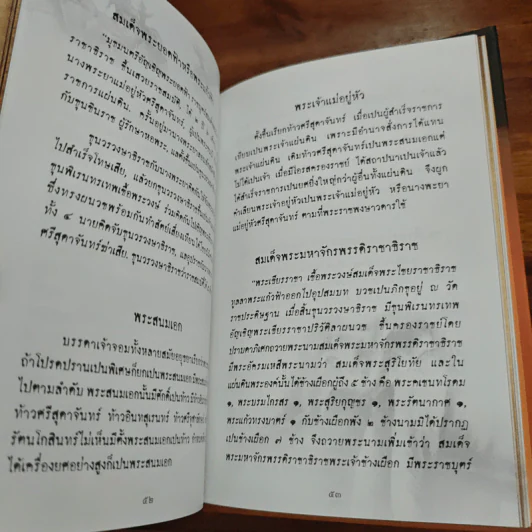 สมเด็จพระยอดฟ้า
ราชาธิราช ขึ้นเสวยราชสมบัติ ได้
นางพระยาแม่อยู่หัวศรีสุดาจันทร์
ราชการแผ่นดิน ครั้นอยู่มานางพระยา
กับขุนชินราช ผู้รักษาหอพระ
ขุนวรวงษาธิราชกับนางพระยา
ไปสำเร็จโทษเสีย
ขุนพิเรนทรเทพเชื้อพระวงษ์ ร่วมคิดกันไป
ซึ่งทรงผนวชพร้อมกันทำสัตย์เสี่ยงเทียน
ทั้ง ๔ นายคิดจับขุนวรวงษาธิราช
ศรีสุดาจันทร์ฆ่าเสีย ขุนวรวงษาธิราช
พระสนมเอก
บรรดาเจ้าจอมทั้งหลายสมัยอยุธยา
ถ้าโปรดปรานเปนพิเศษก็ยกเปนพระสนมเอก
ไปตามลำดับ พระสนมเอกนั้นมีศักดิ์เปนท้าว
ท้าวศรีสุดาจันทร์ ท้าวอินทสุเรนทร์
รัตนโกสินทร์ไม่เห็นมีตั้งพระสนมเอกเปนท้าว
ได้เครื่องยศอย่างสูงก็เปนพระสนมเอก
๕๒
พระเจ้าแม่อยู่หัว
ดังขึ้นเรียกท้าวศรีสุดาจันทร์ เมื่อเปนผู้สำเร็จราชการ
เทียบเปนพระเจ้าแผ่นดิน เพราะมีอำนาจสั่งการได้แทน
พระเจ้าแผ่นดิน เดิมท้าวศรีสุดาจันทร์เปนพระสนมเอกแต่
ไม่ได้เปนเจ้า เมื่อมีโอรสครองราชย์ ได้สถาปนาเปนเจ้าแล้ว
ได้สำเร็จราชการเปนยศยิ่งใหญ่กว่าผู้อื่นทั้งแผ่นดิน จึงผูก
คำเลียนพระเจ้าอยู่หัวเปนพระเจ้าแม่อยู่หัว หรือนางพระยา
แม่อยู่หัวศรีสุดาจันทร์ ตามที่พระราชพงษาวดารใช้
สมเด็จพระมหาจักรพรรดิราชาธิราช
"พระเธียรราชา เชื้อพระวงษ์สมเด็จพระไชยราชาธิราช
ทูลลาพระแก้วฟ้าออกไปอุปสมบท บวชเปนภิกษุอยู่ ณ วัด
ราชประดิษฐาน เมื่อสิ้นขุนวรวงษาธิราช มีขุนพิเรนทรเทพ
อัญเชิญพระเธียรราชาปริวัติลาผนวช ขึ้นครองราชย์โดย
ปราบดาภิเศกถวายพระนามสมเด็จพระมหาจักรพรรดิราชาธิราช
มีพระอัครมเหสีพระนามว่า สมเด็จพระสุริโยทัย และใน
แผ่นดินพระองค์นั้นได้ช้างเผือกผู้ถึง ๕ ช้าง คือ พระคเชนทโรดม
๑, พระบรมไกรสร ๑, พระสุริยกุญชร ๑, พระรัตนากาศ ๑,
พระแก้วทรงบาตร์ ๑ กับช้างเผือกพัง ๒ ช้างนามมิได้ปรากฏ
เปนช้างเผือก ๗ ช้าง จึงถวายพระนามเพิ่มเข้าว่า สมเด็จ
พระมหาจักรพรรดิราชาธิราชพระเจ้าช้างเผือก มีพระราชบุตร์
๕๓